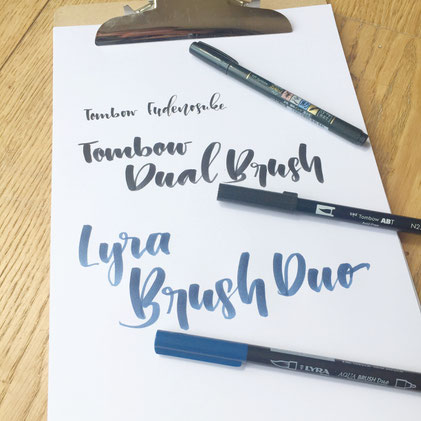 Tombow Fudenosuke
Tombow
Dual Brush
Tombow ABT
Lyra
Brush Duo
LYRA
AQUA BRUSH Duo